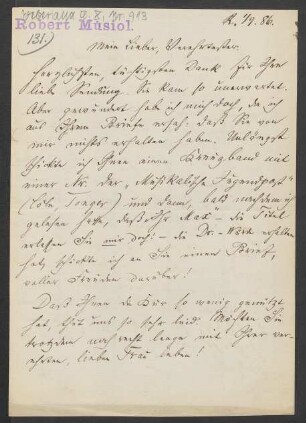 Robert Musiol.
131.)
R. 1/9. 86.
Mein lieber, Verehrtester.
Herzlichsten, tüchtigsten Dank für Ihre
liebe Sendung. Sie kam so unerwartet.
Aber gewundert hab ich mich doch, da ich
aus Ihrem Briefe ersah, daß Sie von
mir nichts erhalten haben. Unlängst
schickte ich Ihnen einen Kreuzband mit
einer Nr. der „Musikalische Jugendpost"
(Cöln, Tonger) und dann, bald nachdem ich
gelesen hatte, daß Ihr Max – die Titel
erlassen Sie mir doch! – die Dr. – Würde erhalten
hat, schickte ich an Sie einen Brief,
voller Freuden darüber!
Daß Ihnen die Kur so wenig genützt
hat, thut uns so sehr leid. Möchten Sie
trotzdem noch recht lange mit Ihrer ver-
ehrten, lieben Frau leben!